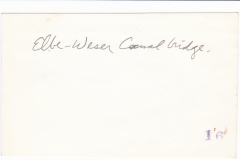 Elbe-Weser Canal bridge.
1'6